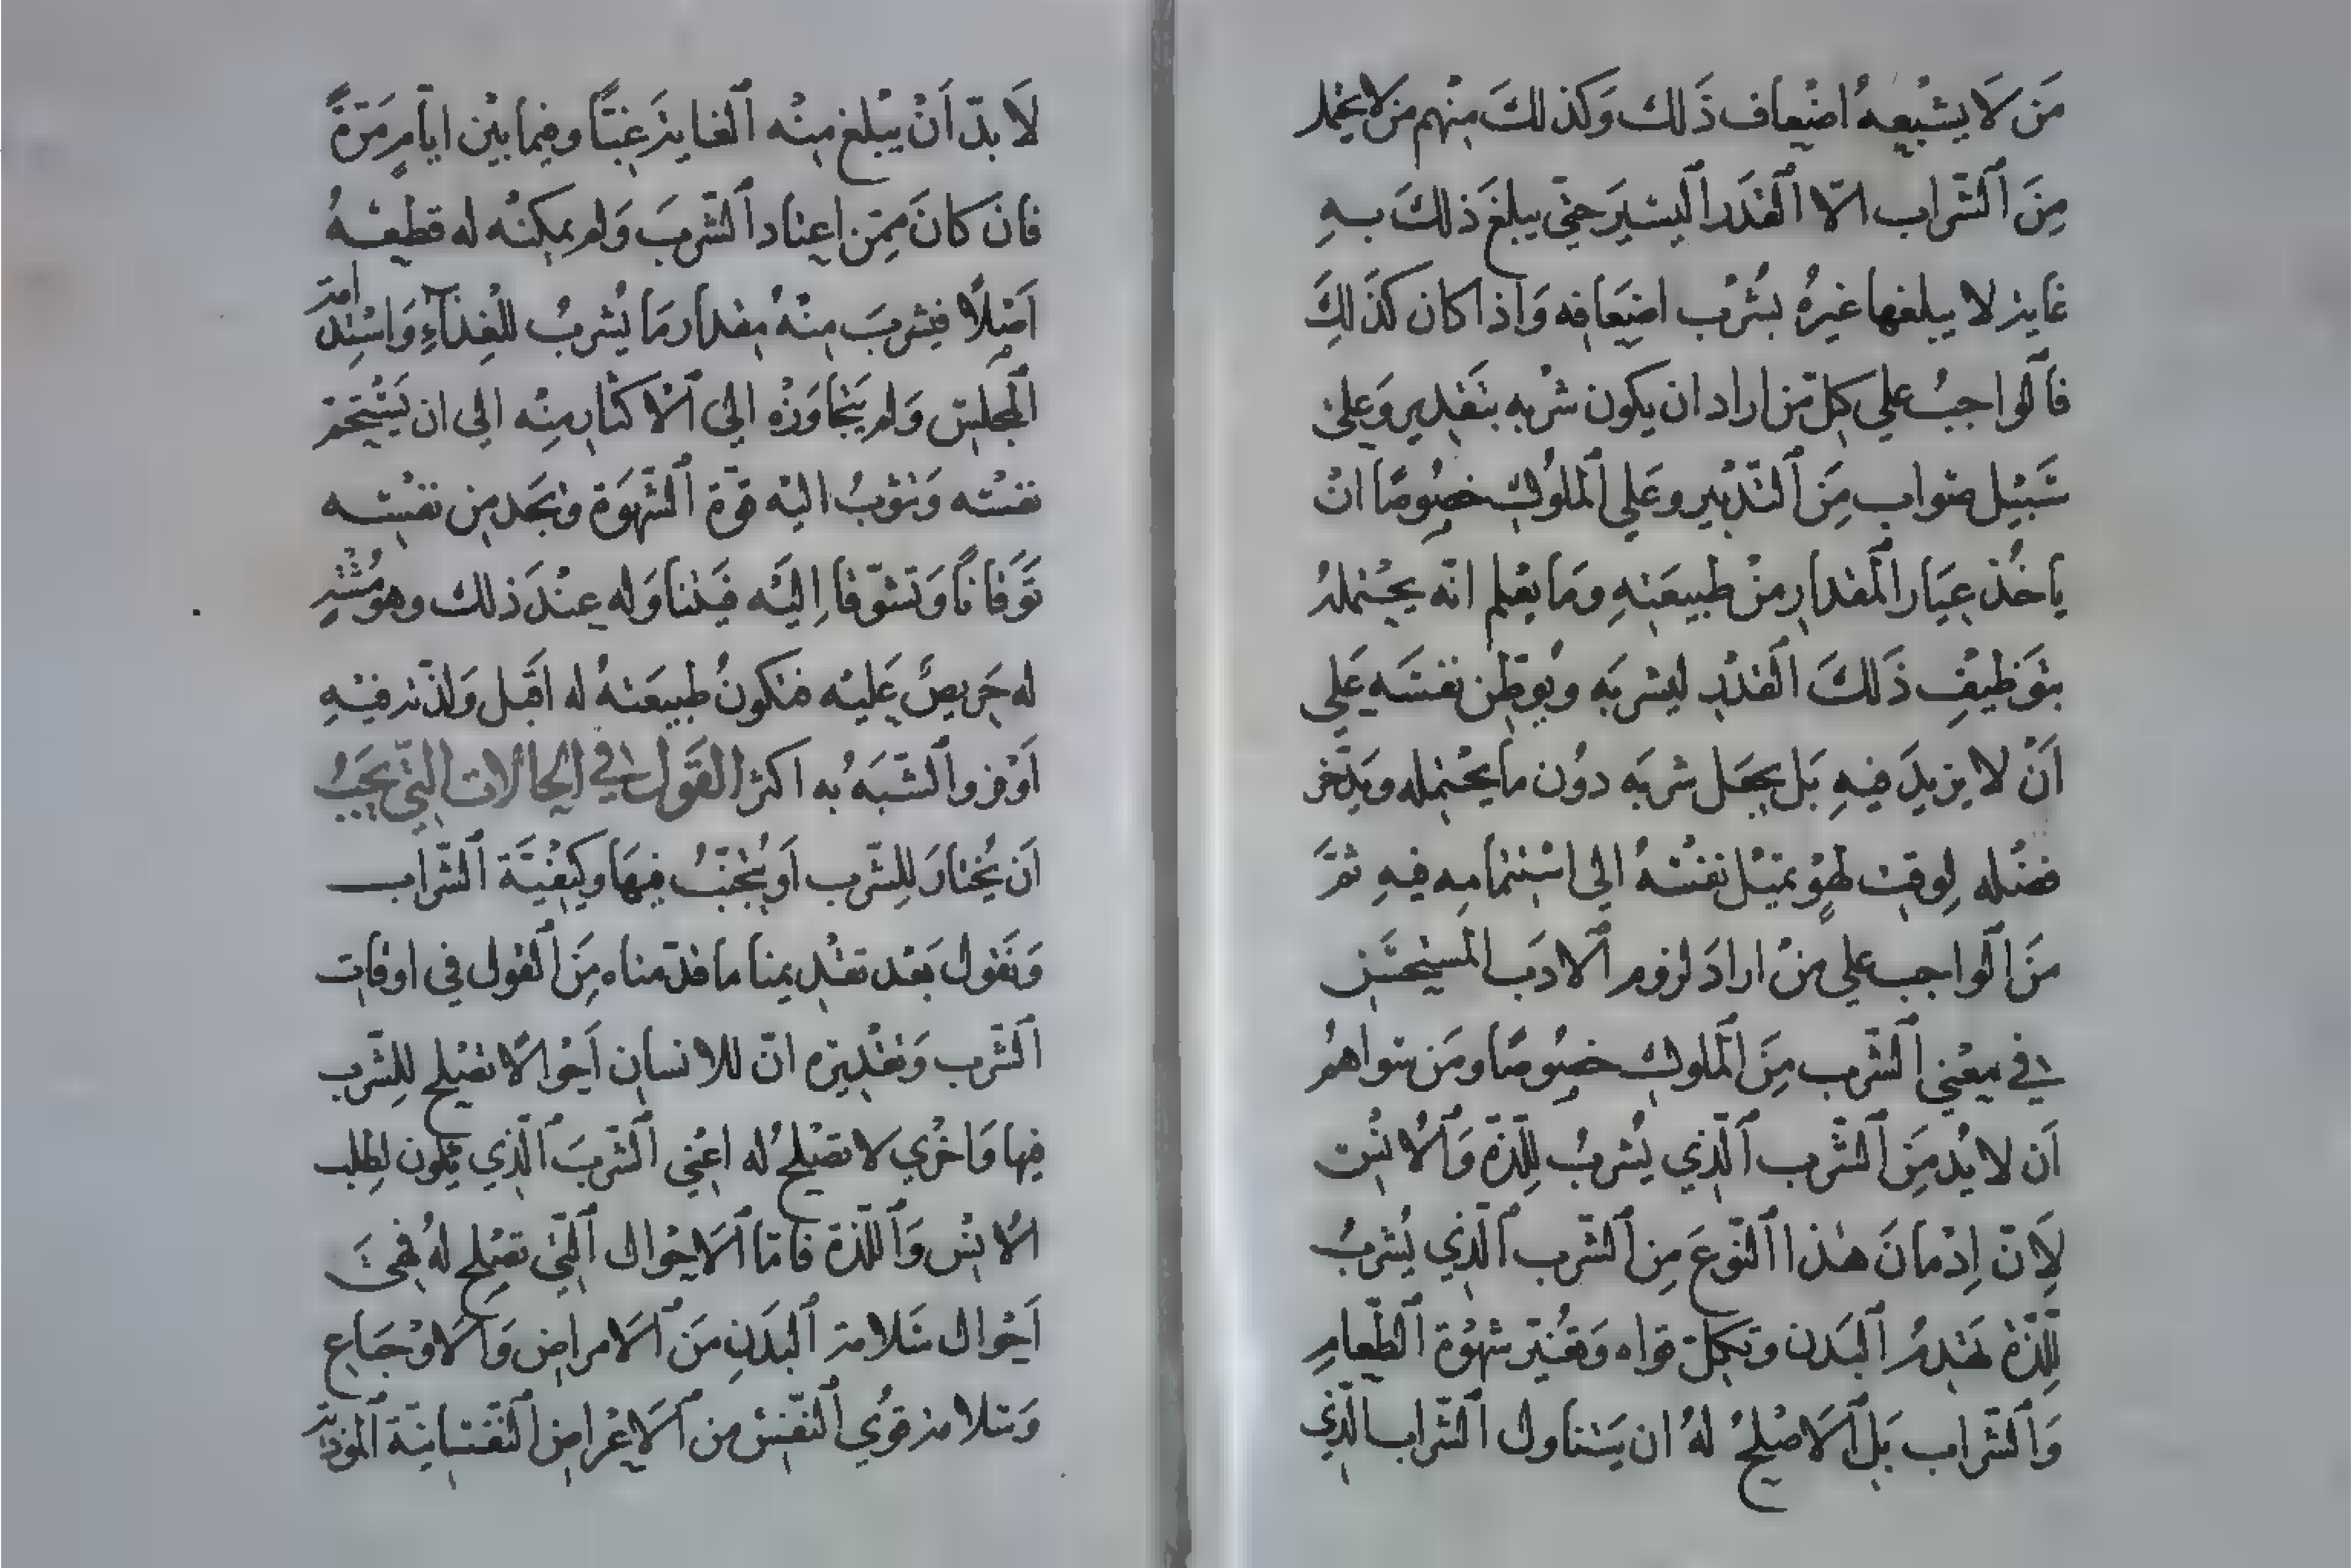 مَن لَا يشبعهُ اضعاف ذَلك وَكذلكَ منهم مَن لا يحمل
مِنَ ٱلشّراب الّا ٱلقدَر اليسيرَ حتّى يبلغَ ذلكَ بهِ
غاية لا يبلغها غيرهُ بشرب اضعَافه وَاذا كان كذَلِكَ
فٱلواجبُ علي كلّ مَن اراد ان يكون شربه بتقدير وَعلى
سَبيل صواب مِنَ ٱلتّدبير وعَلي ٱلملُوك خصُوصًا انْ
ياخُذ عِيَار ٱلمقدار منْ طبيعَتهِ ومَا يعْلم انّه يحتملهُ
بتَوظيفِ ذَلكَ ٱلقدْرِ ليشربَه ويُوَطّن نفسَه عَلي
اَنْ لا يزيدَ فيهِ بَل يجعَل شربَه دوُن ما يحتمله ويَدّخر
فضْله لِوقت لهوٍ تميْل نفسْهُ الى استتمامِه فيهِ ثمَّ
مَن ٱلواجب علي منْ ارادَ لزوم ٱلادَب المستحسَن
في معْني ٱلشّرب مِنَ ٱلملوك خصُوصًا ومَن سواهمُ
اَن لا يُدمِنَ ٱلشّرب ٱلّذي يُشربُ للّذّة وَٱلانْس
لِاَنّ اِدْمانَ هٰذا ٱلنّوعَ مِن ٱلشّرب ٱلّذي يُشربُ
للّذّة يَهْدمُ ٱلبَدن وتكلّ قواه وَتفترّ شهْوَة ٱلطّعامِ
وَٱلشّراب بَل ٱلاَصْلحُ لهُ ان يَتناول ٱلشّراب الّذي
لَا بدّ اَنْ يبْلغ منْه ٱلغاية غِبّاً وفيما بيْن ايّامٍ مَرّةً
فانَ كانَ ممّن اعتاد ٱلشّربَ وَلم يمكنْه له قطْعهُ
اَصْلًا فيشربَ منْهُ مقدار مَا يُشربُ للْغِذآءِ وَاستدامة
ٱلمجلس وَلم يتجاوَزْه الي ٱلاكثار منْه الي ان يَستجمّ
نفسْه وَتؤبُ اليْه قوّة ٱلشّهوَة ويجَد من نفسْه
تَوَقانًا وَتشوّقا اِليَه فيَتناوَله عنْدَ ذلك وهو مُشْتهٍ
له حَريصٌ عَليْه فتكونُ طبيعَتهُ له اقبل وَلذّته فيْهِ
اَوْفر والشّبَهُ به اكثر القَول في الحالات الّتي يجَبُ
اَن يُختارَ للِشّرب اَو يُجْتنَبُ فيهَا وكيْفيّة ٱلشّراب
وَنقول بَعْد تقْديمنا ما قدّمناه مِنَ ٱلقول في اوقات
ٱلشّرب وَتقْديره انّ للانسان اَحْوالًا تصْلح للِشّرب
فيها وَاخْري لا تصْلحُ له اعْني ٱلشّربَ ٱلّذي يكون لطِلب
الانْس وَٱللّذة فامّا ٱلاَحْوال ٱلتّي تصْلح لهُ فهيَ
اَحْوال سَلامة ٱلبَدَنِ مَن ٱلامراض وَٱلاوْجَاع
وَسَلامة قوُي ٱلنّفْس من ٱلاَعْراض ٱلنّفْسانيّة ٱلموذية